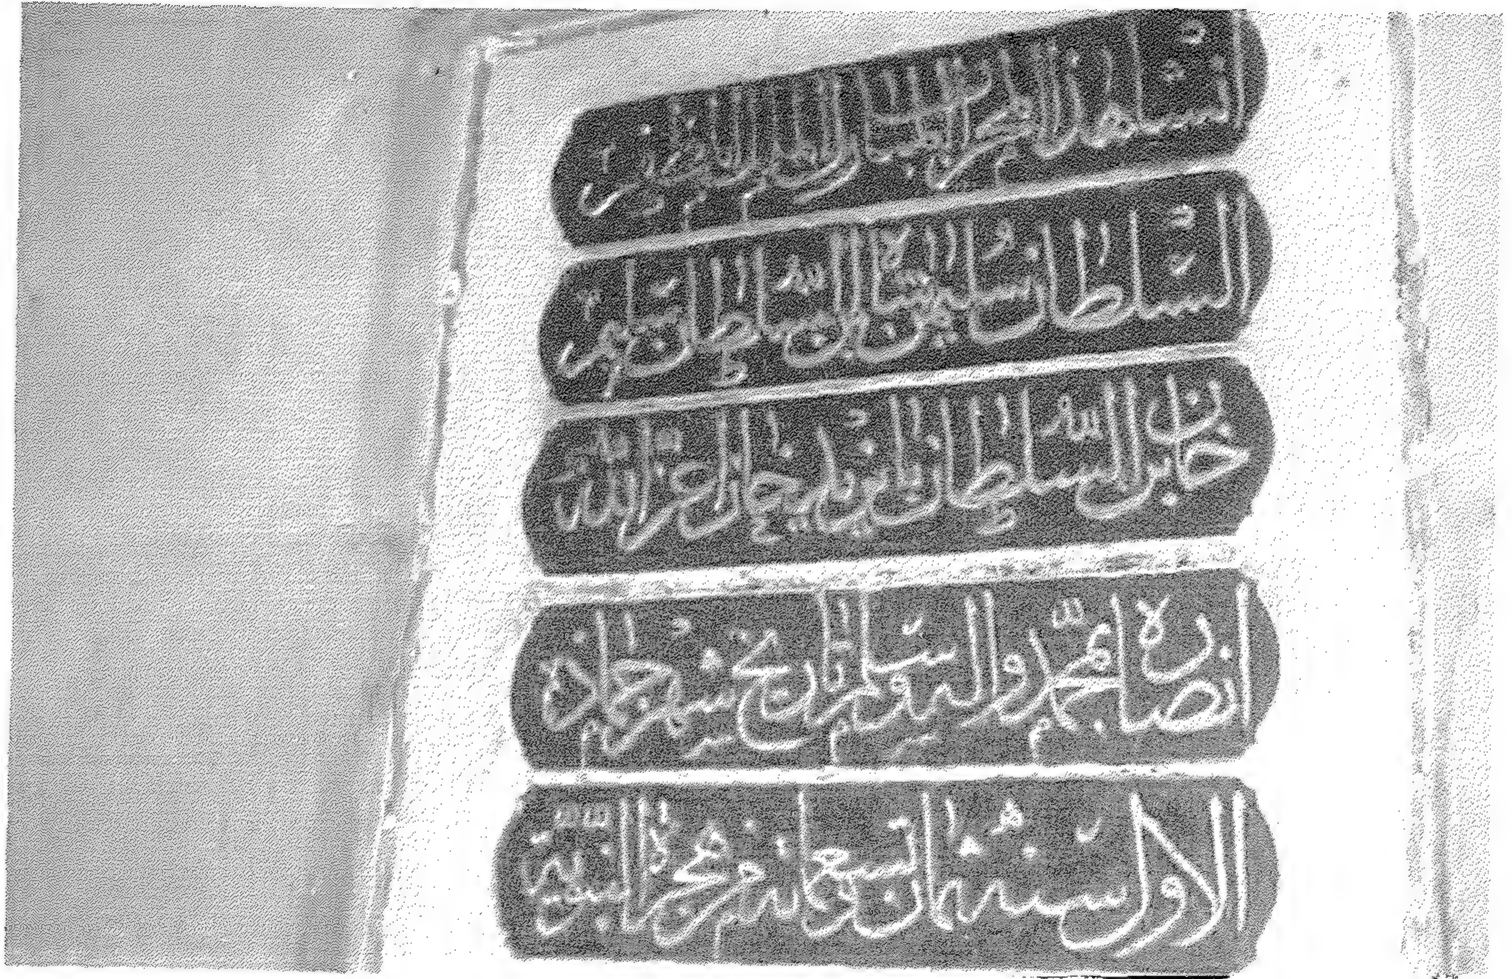 انشا هذا المحراب المبارك الملك المظفر
السلطان سليمان شاه ابن السلطان سليم
خان بن السلطان بايزيد خان اعز الله
انصاره بمحمد واله وسلم تاريخ شهر جماذه
الاول سنه ثمان وتسعمائه من هجرة النبوية